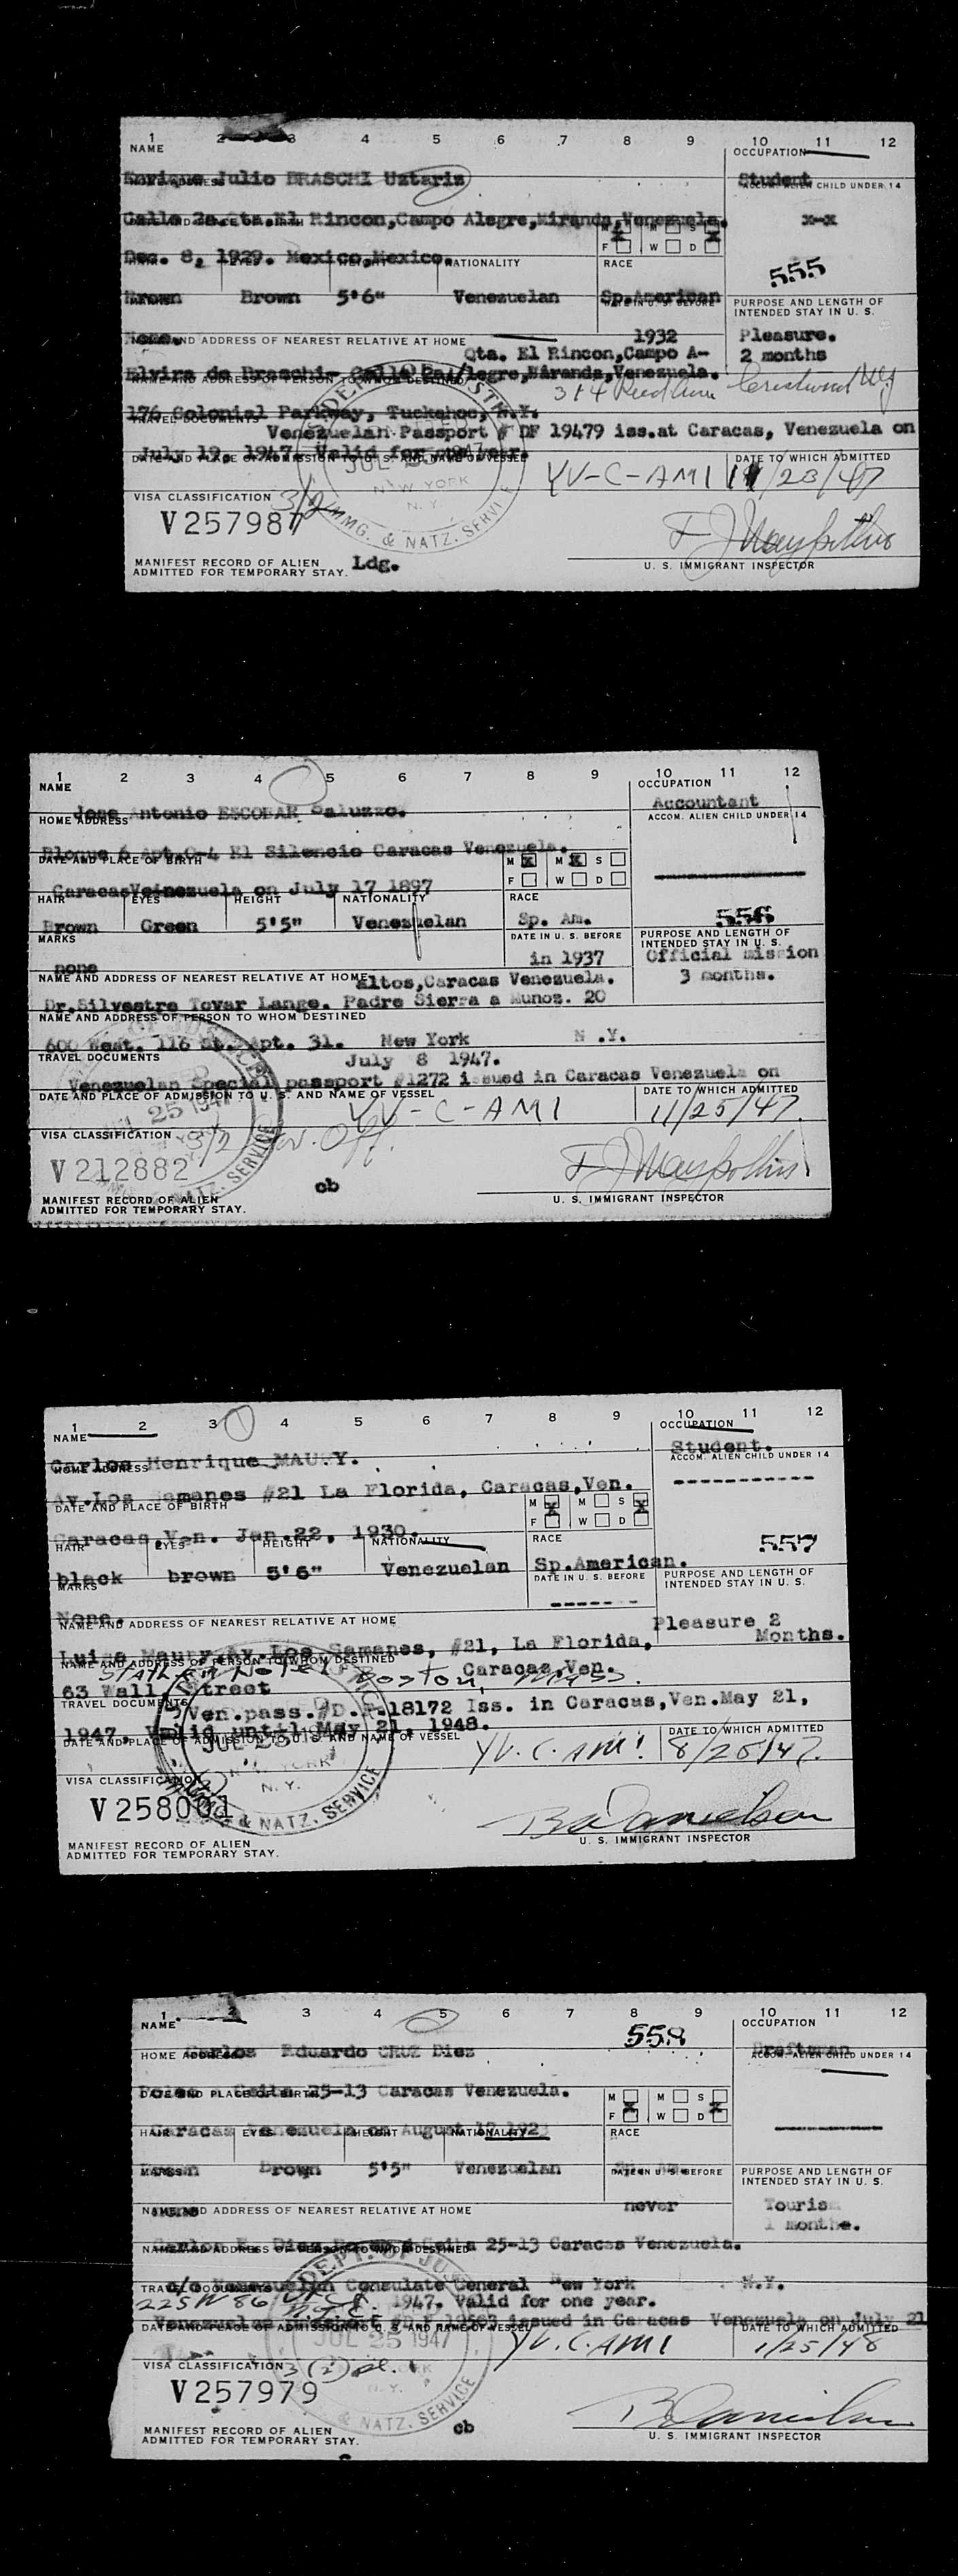 1 2 3 4 5 6 7 8 9 10 11 12
NAME OCCUPATION
Enrique Julio BRASCHI Uztariz Student
HOME ADDRESS ACCOM. ALIEN CHILD UNDER 14
Calle 2a. Qta. El Rincon, Campo Alegre, Miranda, Venezuela. x-x
M M S
F W D
Dec. 8, 1929. Mexico, Mexico.
NATIONALITY RACE 555
Brown Brown 5'6" Venezuelan Sp. American
DATE IN U. S. BEFORE PURPOSE AND LENGTH OF
INTENDED STAY IN U. S.
None. 1932 Pleasure.
NAME AND ADDRESS OF NEAREST RELATIVE AT HOME
Qta. El Rincon, Campo A- 2 months
Elvira de Braschi- Calle 2a./legre, Miranda, Venezuela.
NAME AND ADDRESS OF PERSON TO WHOM DESTINED
Crestwood NY
176 Colonial Parkway, Tuckahoe, N.Y.
TRAVEL DOCUMENTS
Venezuelan Passport # DF 19479 iss. at Caracas, Venezuela on
July 19, 1947. Valid for one year.
DATE AND PLACE OF ADMISSION TO U. S. AND NAME OF VESSEL DATE TO WHICH ADMITTED
YV-C-AMI 11/23/47
NEW YORK
N. Y.
IMMG. & NATZ. SERVICE
VISA CLASSIFICATION 3/2
V257987
MANIFEST RECORD OF ALIEN
ADMITTED FOR TEMPORARY STAY. Ldg. U. S. IMMIGRANT INSPECTOR
1 2 3 4 5 6 7 8 9 10 11 12
NAME OCCUPATION
Jose Antonio ESCOBAR Saluzzo. Accountant
HOME ADDRESS ACCOM. ALIEN CHILD UNDER 14
Bloque 6 Apt. O-4 El Silencio Caracas Venezuela.
DATE AND PLACE OF BIRTH M M S
F W D
Caracas Venezuela on July 17 1897
HAIR EYES HEIGHT NATIONALITY RACE
Brown Green 5'5" Venezuelan Sp. Am. 556
MARKS DATE IN U. S. BEFORE PURPOSE AND LENGTH OF
INTENDED STAY IN U. S.
none in 1937 Official mission
NAME AND ADDRESS OF NEAREST RELATIVE AT HOME Altos, Caracas Venezuela. 3 months.
Dr. Silvestre Tovar Lange. Padre Sierra a Munoz. 20
NAME AND ADDRESS OF PERSON TO WHOM DESTINED
600 West. 116 St. Apt. 31. New York N .Y.
TRAVEL DOCUMENTS July 8 1947.
Venezuelan Special passport #1272 issued in Caracas Venezuela on
DATE AND PLACE OF ADMISSION TO U. S. AND NAME OF VESSEL DATE TO WHICH ADMITTED
YV-C-AMI 11/25/47.
VISA CLASSIFICATION 3/2 Gov. Off.
V212882
MANIFEST RECORD OF ALIEN
ADMITTED FOR TEMPORARY STAY. cb U. S. IMMIGRANT INSPECTOR
1 2 3 4 5 6 7 8 9 10 11 12
NAME OCCUPATION
Carlos Henrique MAURY. Student.
HOME ADDRESS ACCOM. ALIEN CHILD UNDER 14
Av. Los Samanes #21 La Florida, Caracas, Ven.
DATE AND PLACE OF BIRTH M M S
F W D
Caracas, Ven. Jan. 22, 1930.
HAIR EYES HEIGHT NATIONALITY RACE 557
black brown 5'6" Venezuelan Sp. American.
MARKS DATE IN U. S. BEFORE PURPOSE AND LENGTH OF
INTENDED STAY IN U. S.
None.
NAME AND ADDRESS OF NEAREST RELATIVE AT HOME Pleasure 2
Months.
Luisa Maury, Av. Los Samanes, #21, La Florida,
NAME AND ADDRESS OF PERSON TO WHOM DESTINED Caracas, Ven.
Statler Hotel Boston, Mass.
63 Wall Street
TRAVEL DOCUMENTS
Ven. pass. #D.F. 18172 Iss. in Caracas, Ven. May 21,
1947, Valid until May 21, 1948.
DATE AND PLACE OF ADMISSION TO U. S. AND NAME OF VESSEL DATE TO WHICH ADMITTED
YV.C.AMI 8/25/47.
N. Y.
& NATZ. SERVICE
VISA CLASSIFICATION
V258001
MANIFEST RECORD OF ALIEN
ADMITTED FOR TEMPORARY STAY. U. S. IMMIGRANT INSPECTOR
1 2 3 4 5 6 7 8 9 10 11 12
NAME 558 OCCUPATION
Carlos Eduardo CRUZ Diez Draftsman
HOME ADDRESS ACCOM. ALIEN CHILD UNDER 14
25-13 Caracas Venezuela.
DATE AND PLACE OF BIRTH M M S
F W D
Caracas Venezuela on August 17 1923
HAIR EYES HEIGHT NATIONALITY RACE
Brown Brown 5'5" Venezuelan
MARKS DATE IN U. S. BEFORE PURPOSE AND LENGTH OF
INTENDED STAY IN U. S.
none never Touris
NAME AND ADDRESS OF NEAREST RELATIVE AT HOME 1 months.
Carlos E. Diez 25-13 Caracas Venezuela.
NAME AND ADDRESS OF PERSON TO WHOM DESTINED
DEPT. OF JUSTICE
c/o Venezuelan Consulate General New York N.Y.
TRAVEL DOCUMENTS
225 W 86 St. N.Y.C. 1947. Valid for one year.
Venezuelan passport issued in Caracas Venezuela on July 21
DATE AND PLACE OF ADMISSION TO U. S. AND NAME OF VESSEL DATE TO WHICH ADMITTED
JUL 25 1947 YV.C.AMI 1/25/48
VISA CLASSIFICATION 3(2) pl.
V257979
N. Y.
& NATZ. SERVICE
MANIFEST RECORD OF ALIEN
ADMITTED FOR TEMPORARY STAY. cb U. S. IMMIGRANT INSPECTOR